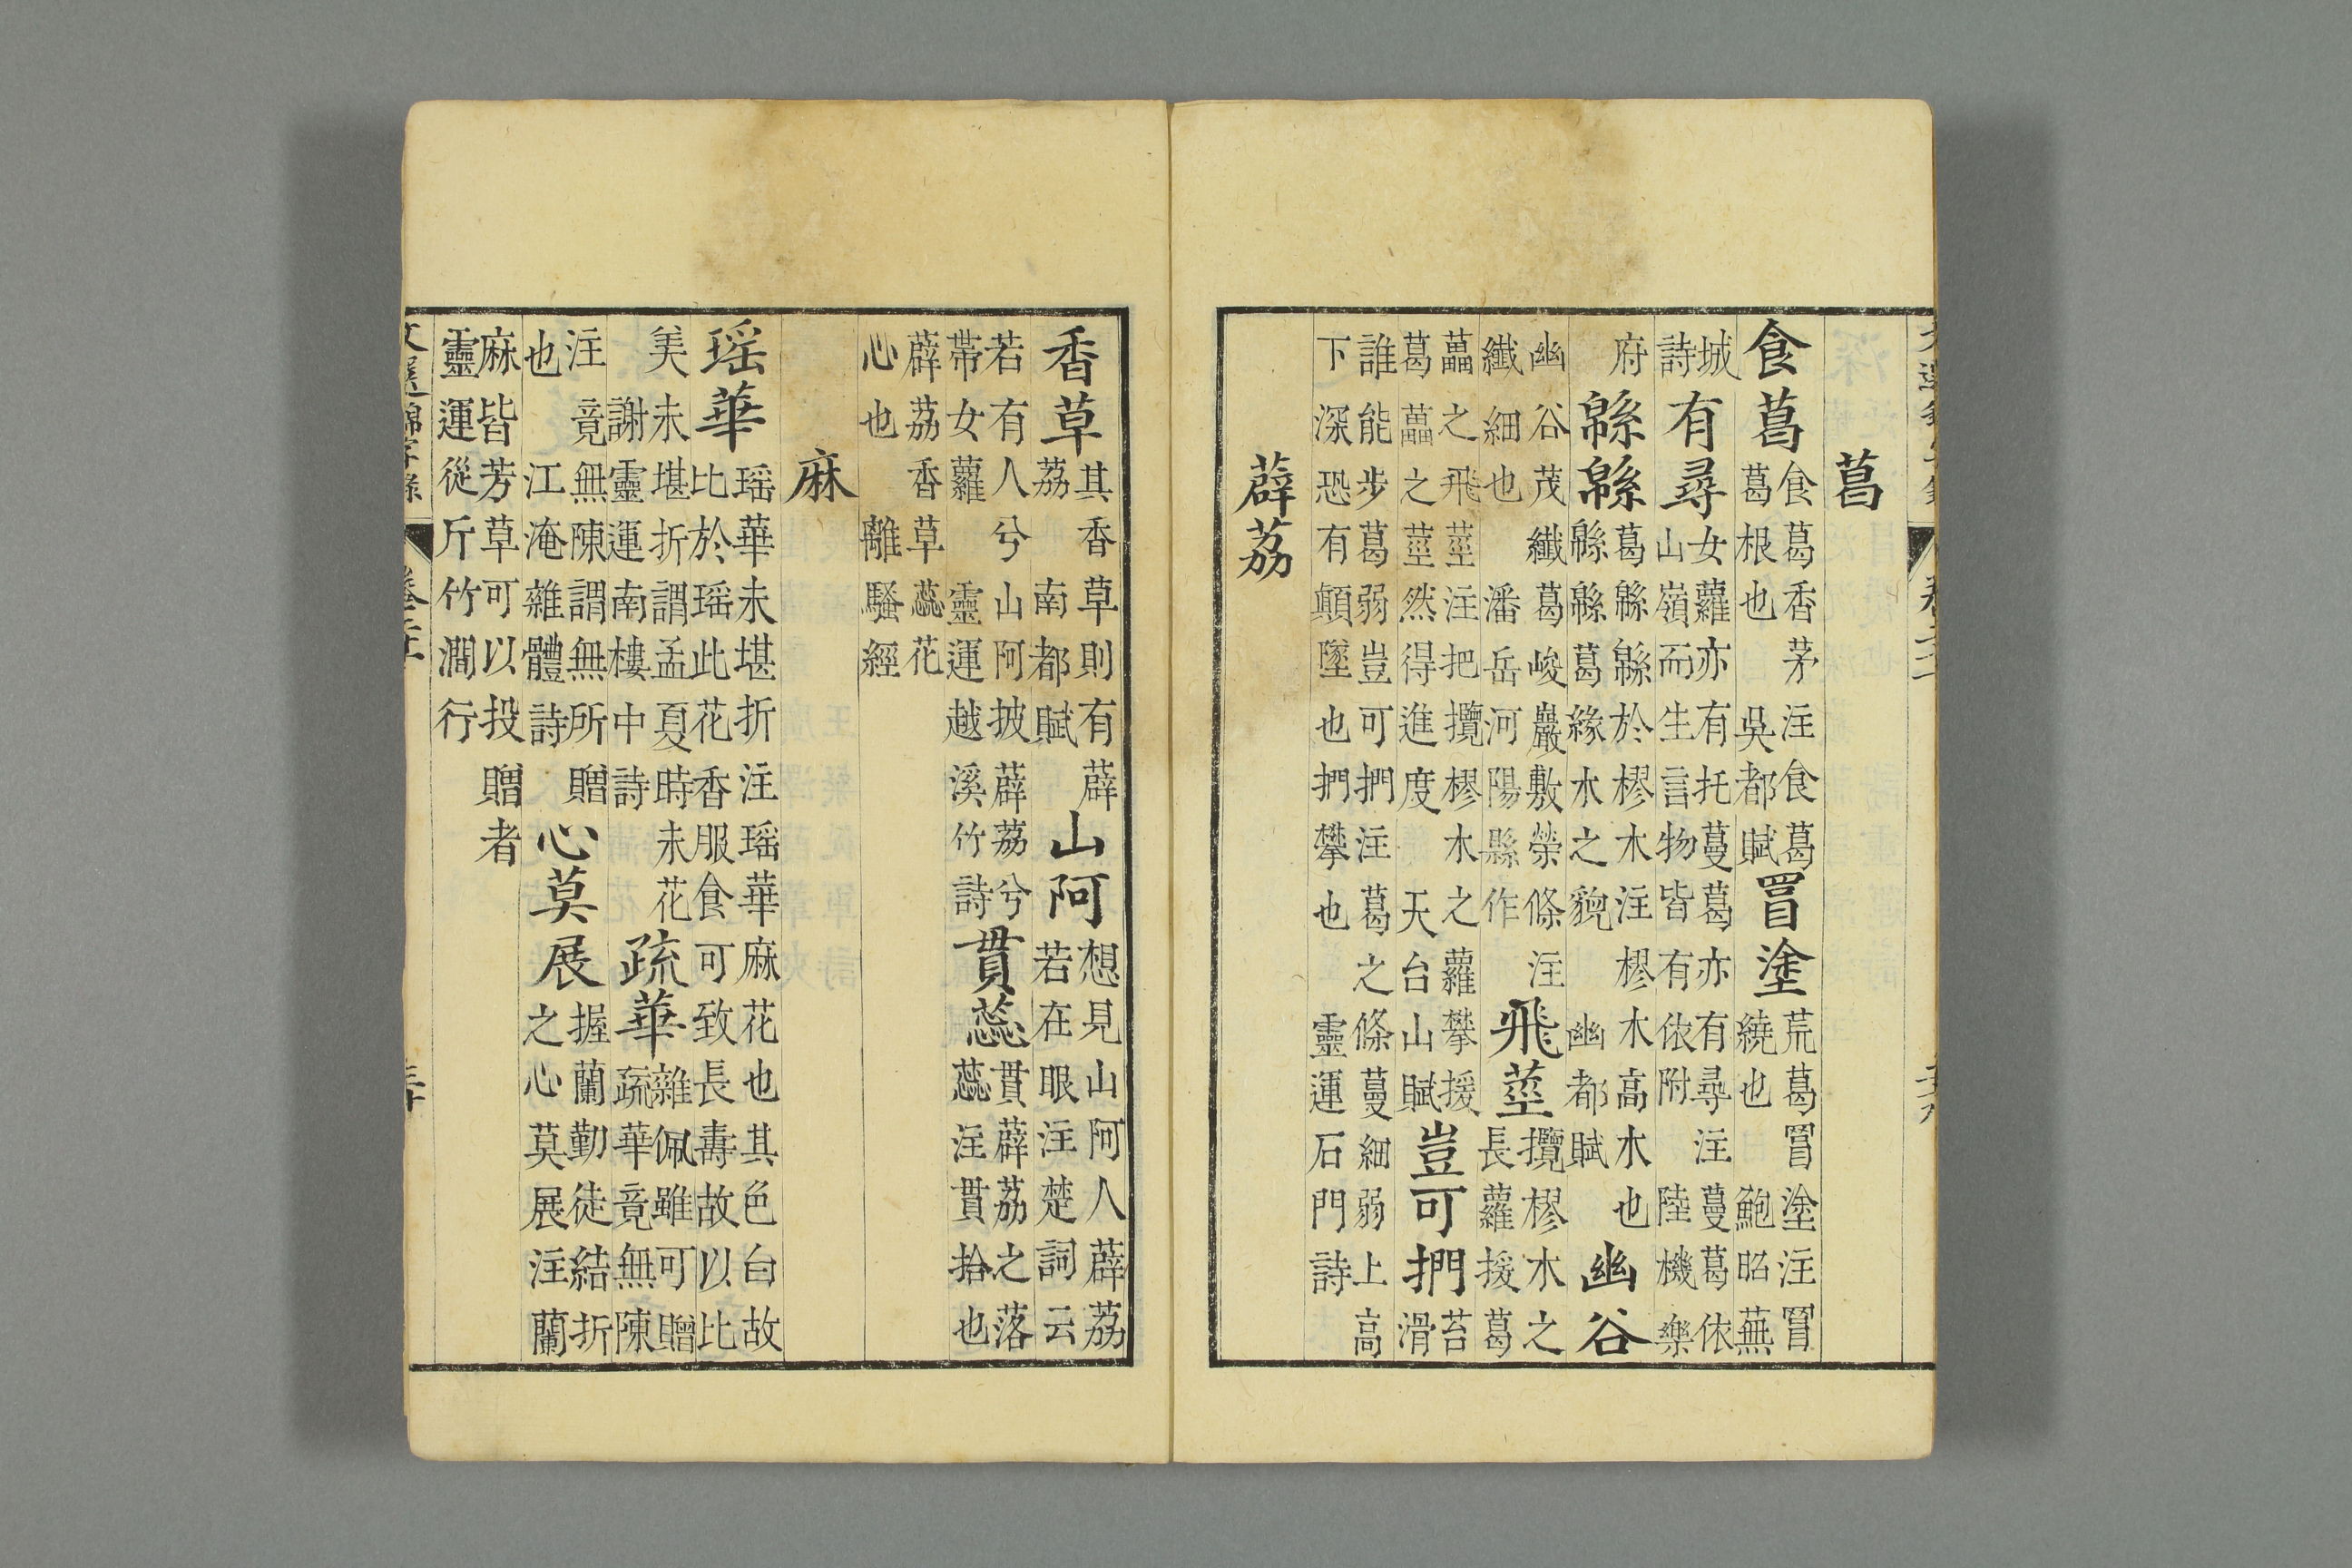 葛
食葛食葛香茅注食葛葛根也 吳都賦罥塗荒葛罥塗注罥繞也 鮑昭蕪
城詩有尋女蘿亦有托蔓葛亦有尋注蔓葛依山嶺而生言物皆有依附 陸機樂
府緜緜葛緜緜於樛木注樛木高木也緜緜葛緣木之貌 幽都賦幽谷
幽谷茂纖葛峻巖敷榮條注纖細也 潘岳河陽縣作飛莖攬樛木之長蘿援葛
藟之飛莖注把攬樛木之蘿攀援葛藟之莖然得進度 天台山賦豈可捫苔滑
誰能步葛弱豈可捫注葛之條蔓細弱上高下深恐有顛墜也捫攀也 靈運石門詩
薜荔
香草其香草則有薜荔 南都賦山阿想見山阿人薜荔若在眼注楚詞云
若有人兮山阿披薜荔兮帶女蘿 靈運越溪竹詩貫蕊貫薜荔之落蕊注貫拾也
薜荔香草蕊花心也 離騷經
麻
瑶華瑶華未堪折注瑶華麻花也其色白故比於瑶此花香服食可致長壽故以比
美未堪折謂孟夏時未花 謝靈運南樓中詩疏華雜佩雖可贈疏華竟無陳
注竟無陳謂無所贈也 江淹雜體詩心莫展握蘭勤徒結折之心莫展注蘭
麻皆芳草可以投贈者靈運從斤竹澗行
文選錦字錄